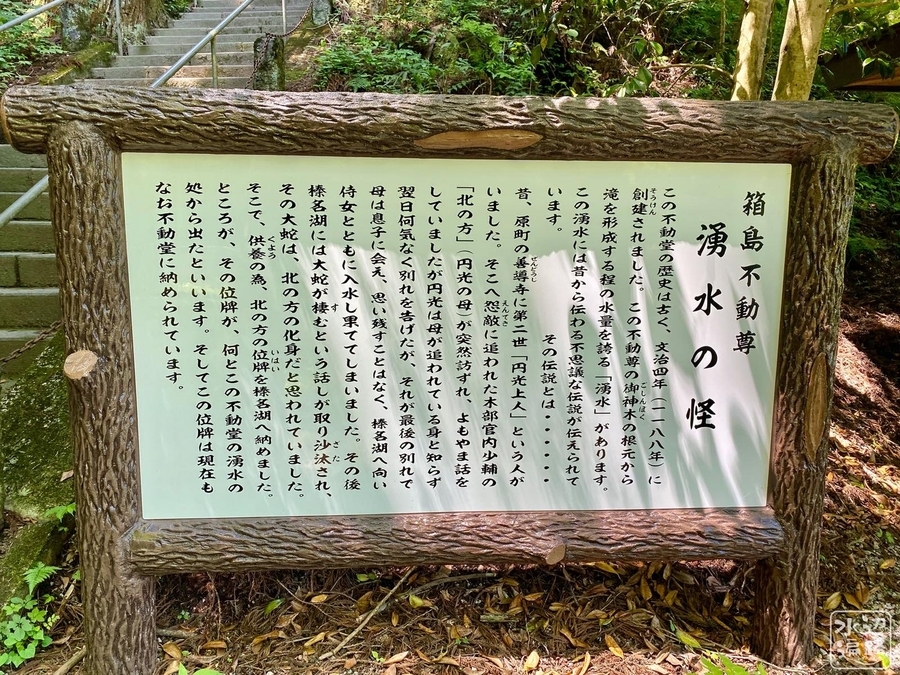 箱島不動尊
湧水の怪
この不動堂の歴史は古く、文治四年(一一八八年)に
創建されました。この不動尊の御神木の根元から
そうけん
ごしんぼく
滝を形成する程の水量を誇る「湧水」があります。
この湧水には昔から伝わる不思議な伝説が伝えられて
います。
その伝説とは・・・・・
昔、原町の善導寺に第二世「円光上人」という人が
ぜんどうじ
いました。そこへ怨敵に追われた木部宮内少輔の
えんてき
「北の方」(円光の母)が突然訪ずれ、よもやま話を
していましたが円光は母が追われている身と知らず
翌日何気なく別れを告げたが、それが最後の別れで
母は息子に会え、思い残すことはなく、榛名湖へ向い
侍女とともに入水し果ててしまいました。その後
榛名湖には大蛇が棲むという話しが取り沙汰され、
す
ざた
その大蛇は、北の方の化身だと思われていました。
そこで、供養の為、北の方の位牌を榛名湖へ納めました。
くよう
いはい
ところが、その位牌が、何とこの不動堂の湧水の
処から出たといいます。そしてこの位牌は現在も
なお不動堂に納められています。